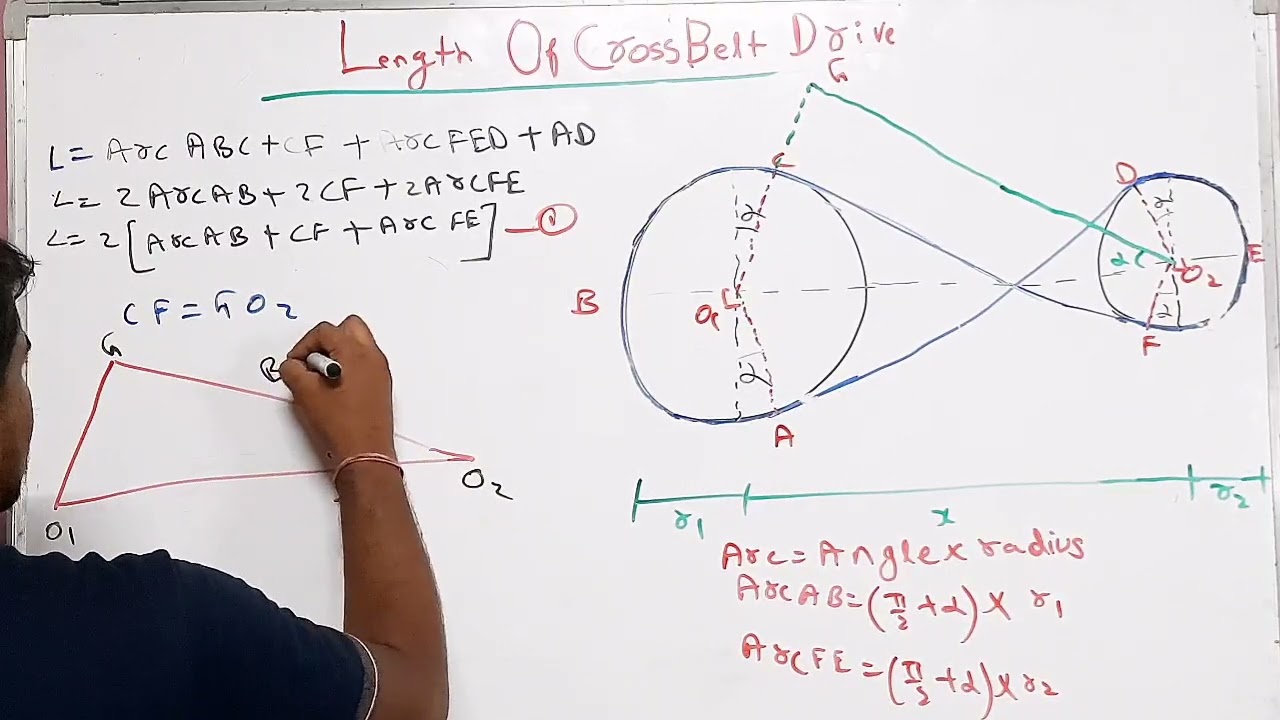 Length Of Cross Belt Drive
L = Arc ABC + CF + Arc FED + AD
L = 2 Arc AB + 2 CF + 2 Arc FE
L = 2 [Arc AB + CF + Arc FE] — ①
CF = GO2
G
O1
O2
G
C
D
α
α
α
α
α
B
O1
O2
E
F
A
r1
x
r2
Arc = Angle x radius
Arc AB = (π/2 + α) x r1
Arc FE = (π/2 + α) x r2